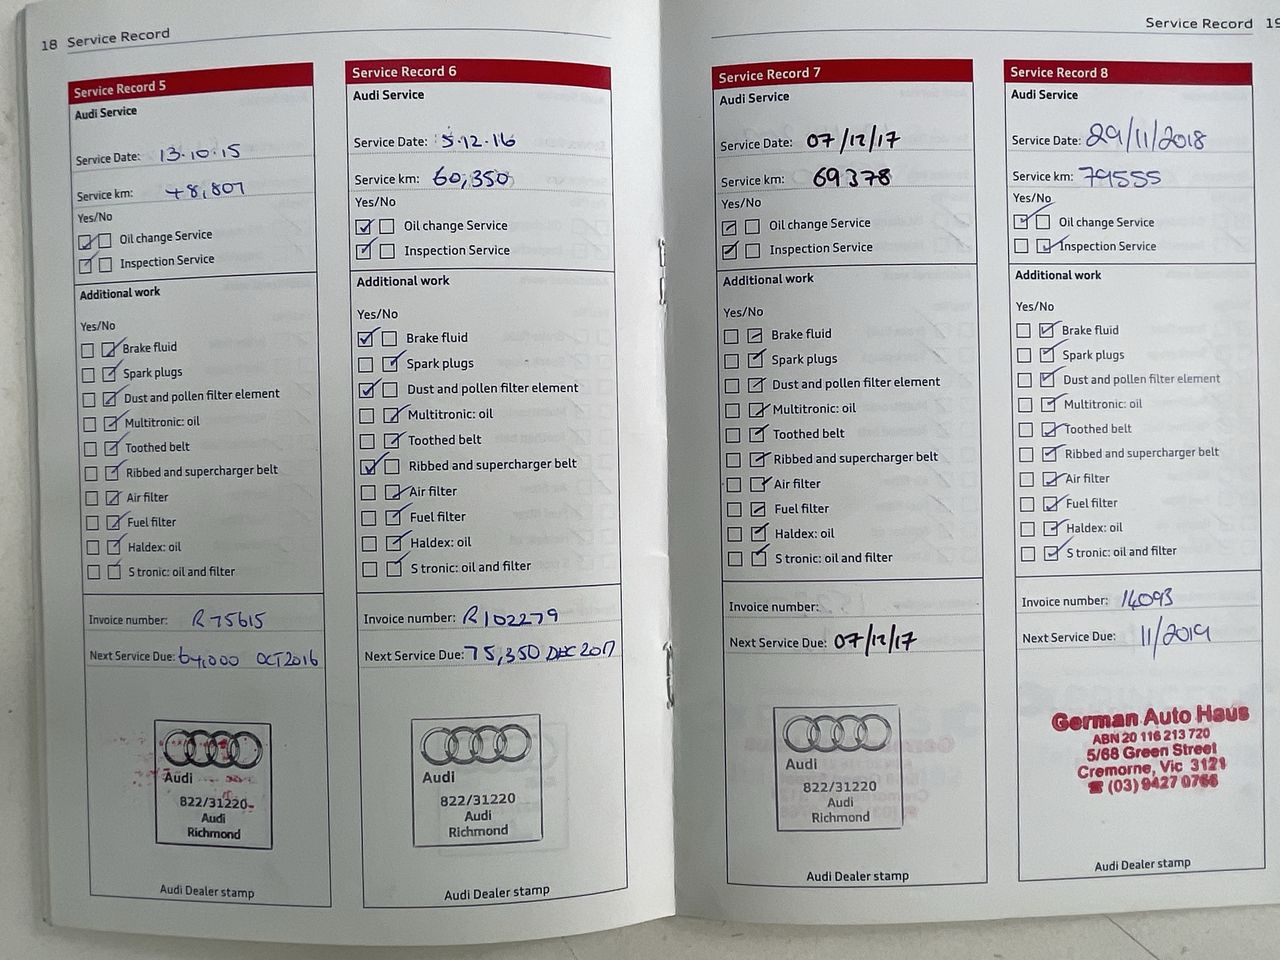 18 Service Record
Service Record 5
Audi Service
Service Date: 13.10.15
Service km: 48,807
Yes/No
Oil change Service
Inspection Service
Additional work
Yes/No
Brake fluid
Spark plugs
Dust and pollen filter element
Multitronic: oil
Toothed belt
Ribbed and supercharger belt
Air filter
Fuel filter
Haldex: oil
S tronic: oil and filter
Invoice number: R75615
Next Service Due: 64,000 OCT 2016
Audi
822/31220
Audi
Richmond
Audi Dealer stamp
Service Record 6
Audi Service
Service Date: 5.12.16
Service km: 60,350
Yes/No
Oil change Service
Inspection Service
Additional work
Yes/No
Brake fluid
Spark plugs
Dust and pollen filter element
Multitronic: oil
Toothed belt
Ribbed and supercharger belt
Air filter
Fuel filter
Haldex: oil
S tronic: oil and filter
Invoice number: R102279
Next Service Due: 75,350 DEC 2017
Audi
822/31220
Audi
Richmond
Audi Dealer stamp
Service Record 19
Service Record 7
Audi Service
Service Date: 07/12/17
Service km: 69378
Yes/No
Oil change Service
Inspection Service
Additional work
Yes/No
Brake fluid
Spark plugs
Dust and pollen filter element
Multitronic: oil
Toothed belt
Ribbed and supercharger belt
Air filter
Fuel filter
Haldex: oil
S tronic: oil and filter
Invoice number:
Next Service Due: 07/12/17
Audi
822/31220
Audi
Richmond
Audi Dealer stamp
Service Record 8
Audi Service
Service Date: 29/11/2018
Service km: 79555
Yes/No
Oil change Service
Inspection Service
Additional work
Yes/No
Brake fluid
Spark plugs
Dust and pollen filter element
Multitronic: oil
Toothed belt
Ribbed and supercharger belt
Air filter
Fuel filter
Haldex: oil
S tronic: oil and filter
Invoice number: 14093
Next Service Due: 11/2019
German Auto Haus
ABN 20 116 213 720
5/68 Green Street
Cremorne, Vic 3121
☎ (03) 9427 0766
Audi Dealer stamp